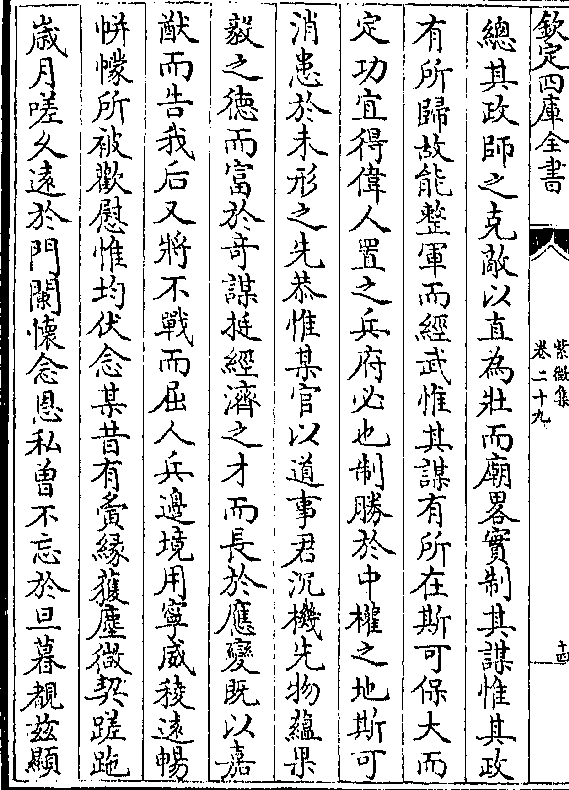 欽定四庫全書
紫微集
卷二十九
十四
總其政師之克敵以直為壯而廟畧實制其謀惟其政
有所歸故能整軍而經武惟其謀有所在斯可保大而
定功宜得偉人置之兵府必也制勝於中權之地斯可
消患於未形之先恭惟某官以道事君沉機先物蘊果
毅之德而富於奇謀挺經濟之才而長於應變既以嘉
猷而告我后又將不戰而屈人兵邊境用寧威稜遠暢
帡幪所被歡慰惟均伏念某昔有夤緣獲塵微契蹉跎
歲月嗟久遠於門闌懷念恩私曽不忘於旦暮覩兹顯